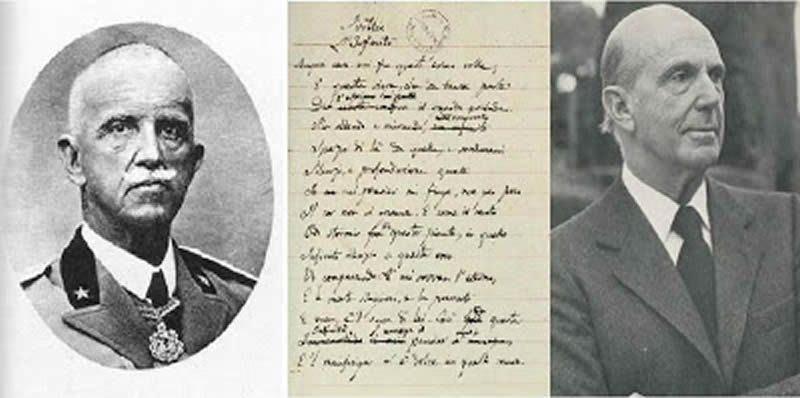 Idillio
L'Infinito
Sempre caro mi fu quest'ermo colle,
E questa siepe, che da tanta parte
il guardo esclude.
Ma sedendo e mirando,
Spazio di là da quella, e sovrumani
Silenzi, e profondissima quiete
Io nel pensier mi fingo, ove per poco
Il cor non si spaura. E come il vento
Odo stormir fra queste piante, io quello
Infinito silenzio a questa voce
Vo comparando. E mi sovvien l'eterno,
E le morte stagioni, e la presente
E viva, e 'l suon di lei. Così questa
pensier
E 'l naufragar m'è dolce in questo mare.